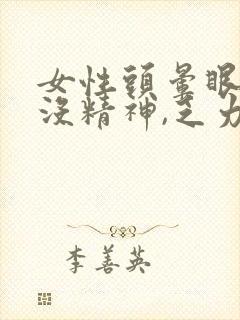 女性頭暈眼
沒精神,乏力
李善英